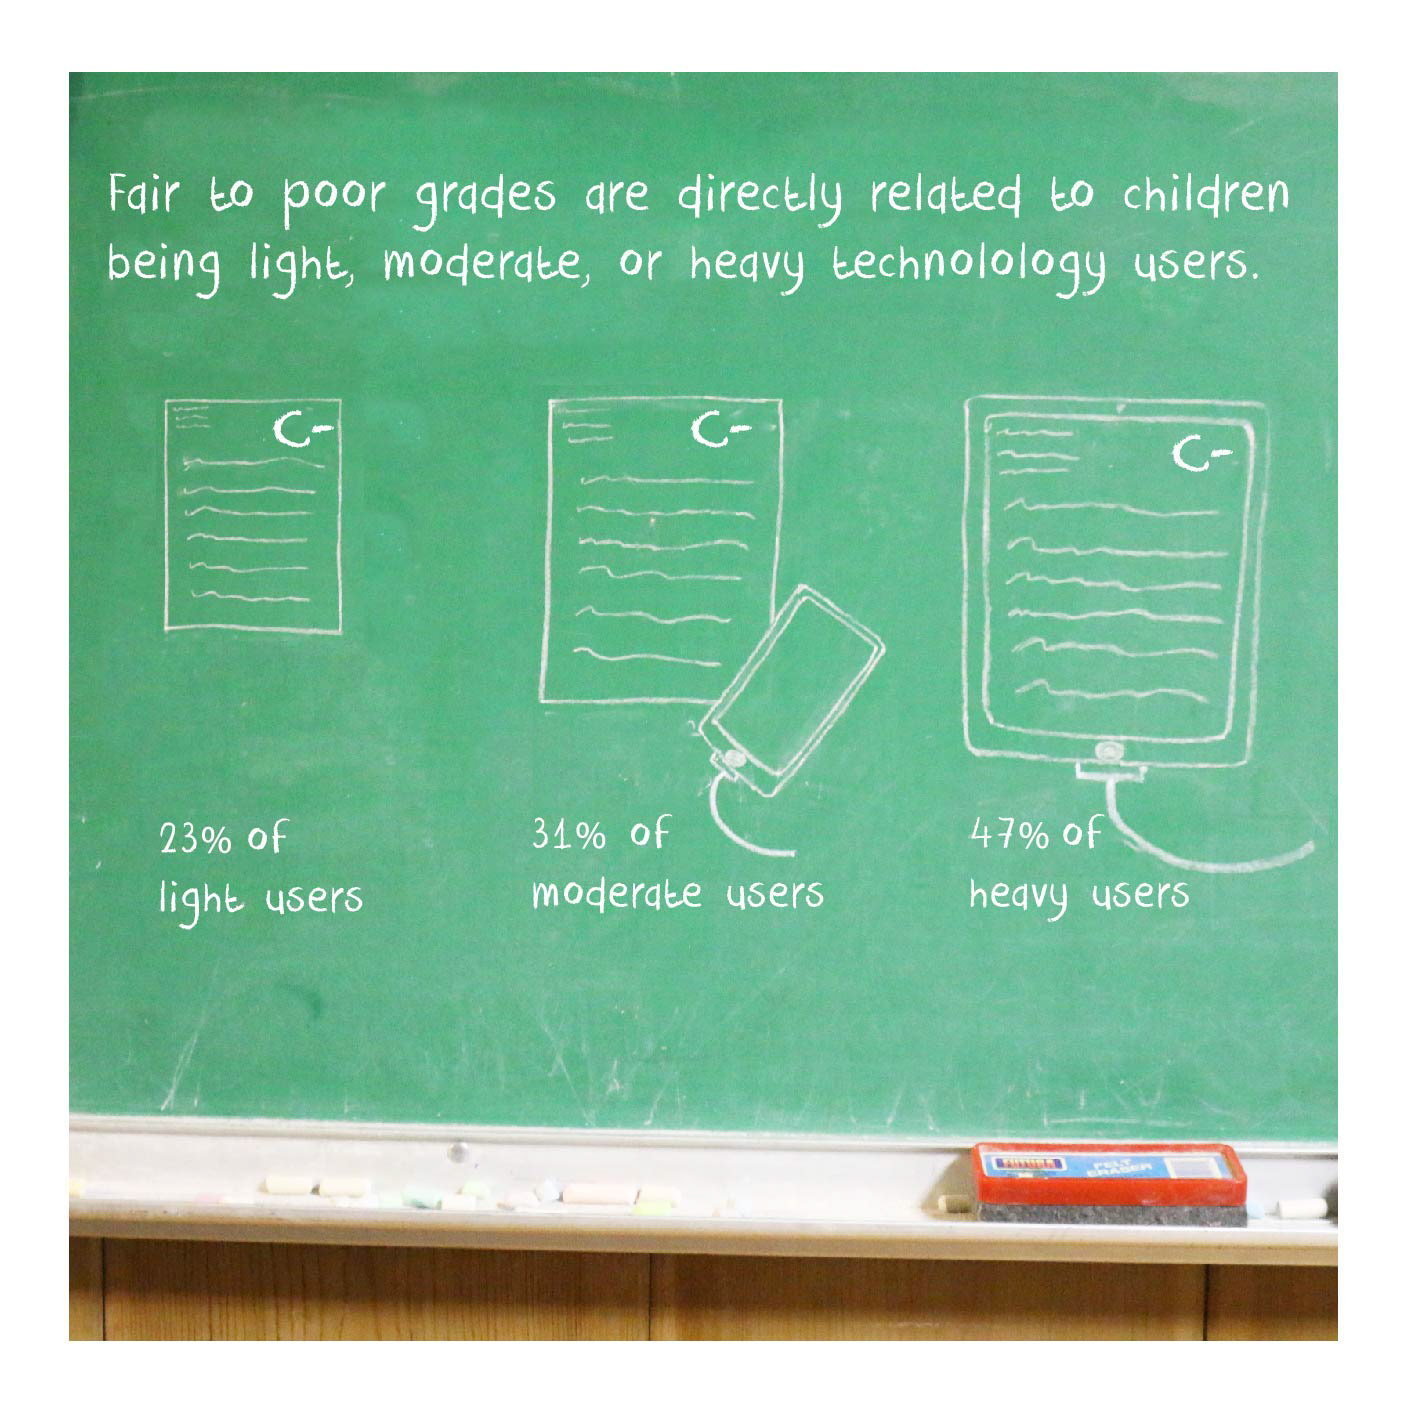 Fair to poor grades are directly related to children
being light, moderate, or heavy technolology users.
C-
C-
C-
23% of
light users
31% of
moderate users
47% of
heavy users
FELT
ERASER